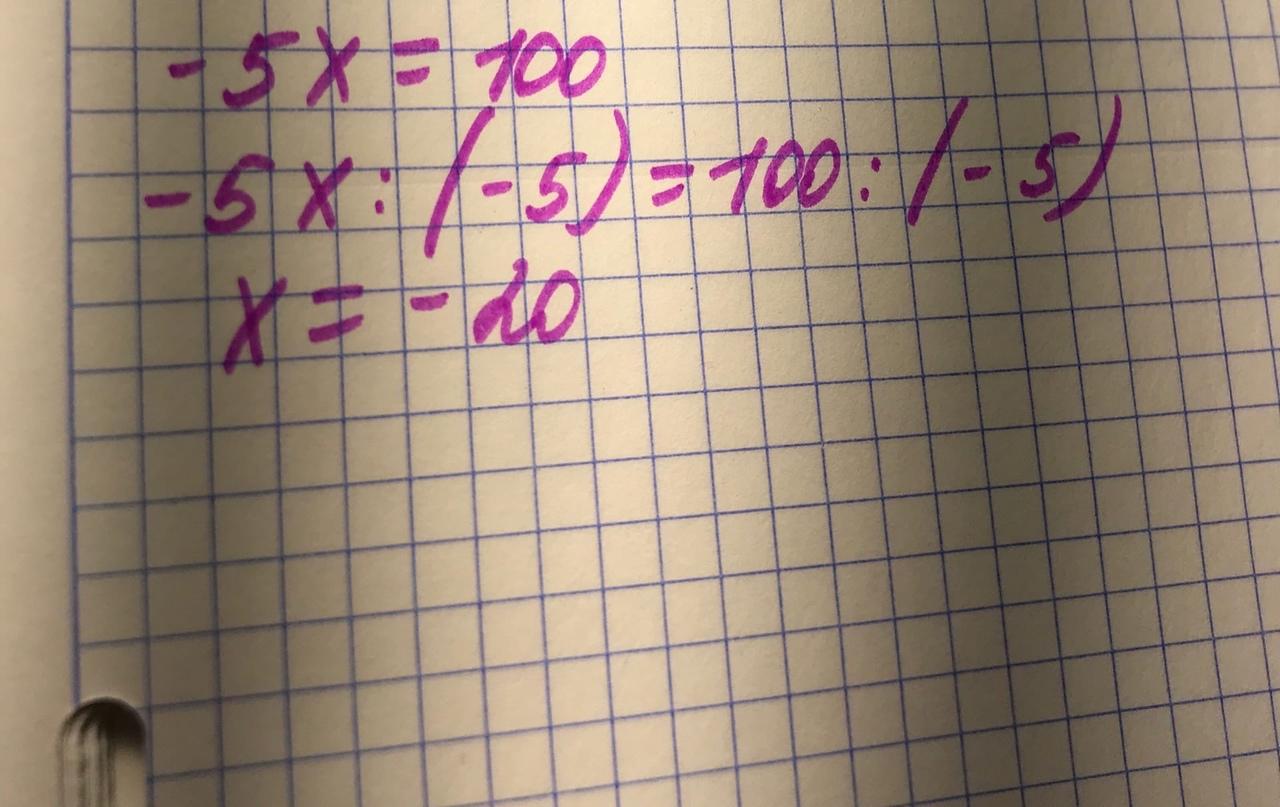 -5x = 100
-5x : (-5) = 100 : (-5)
x = -20